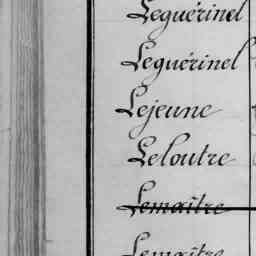 Leguérinel
Leguérinel
Lejeune
Leloutre
Lemaître
Lemaître